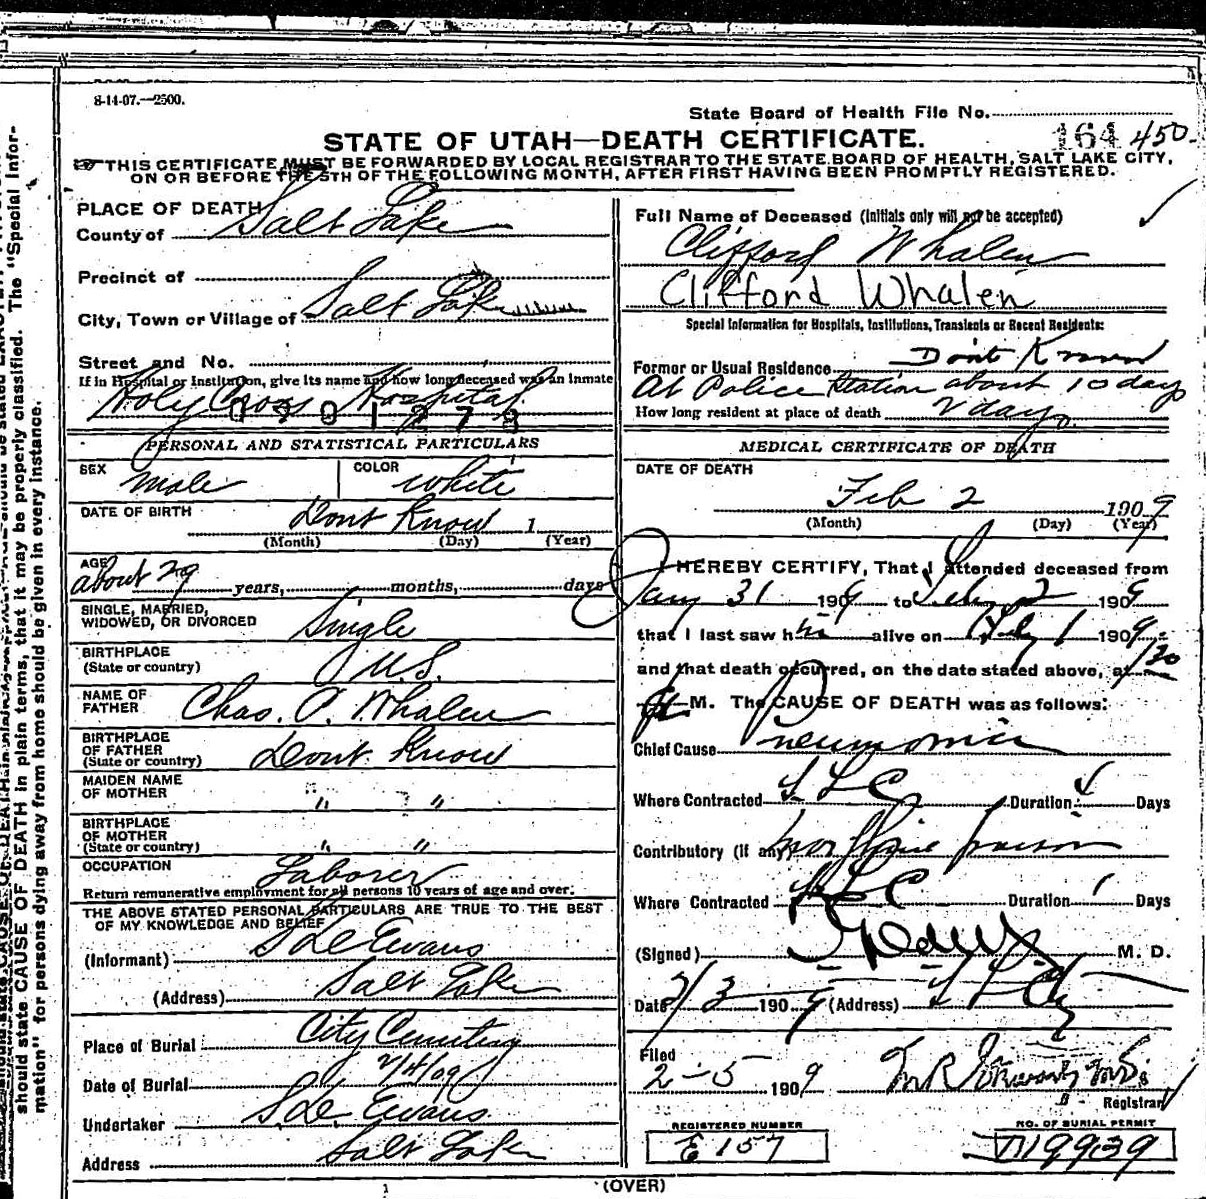 8-14-07.—2500.
State Board of Health File No.
164 450
STATE OF UTAH—DEATH CERTIFICATE.
THIS CERTIFICATE MUST BE FORWARDED BY LOCAL REGISTRAR TO THE STATE BOARD OF HEALTH, SALT LAKE CITY,
ON OR BEFORE THE 5TH OF THE FOLLOWING MONTH, AFTER FIRST HAVING BEEN PROMPTLY REGISTERED.
PLACE OF DEATH
County of Salt Lake
Precinct of
City, Town or Village of Salt Lake
Street and No.
If in Hospital or Institution, give its name and how long deceased was an inmate
Holy Cross Hospital
PERSONAL AND STATISTICAL PARTICULARS
SEX male COLOR white
DATE OF BIRTH Dont Know 1
(Month) (Day) (Year)
AGE about 29 years, months, days
SINGLE, MARRIED,
WIDOWED, OR DIVORCED Single
BIRTHPLACE
(State or country) U.S.
NAME OF
FATHER Chas. P. Whalen
BIRTHPLACE
OF FATHER
(State or country) Dont Know
MAIDEN NAME
OF MOTHER " "
BIRTHPLACE
OF MOTHER
(State or country) " "
OCCUPATION Laborer
Return remunerative employment for all persons 10 years of age and over.
THE ABOVE STATED PERSONAL PARTICULARS ARE TRUE TO THE BEST
OF MY KNOWLEDGE AND BELIEF
(Informant) S. D. Evans
(Address) Salt Lake
Place of Burial City Cemetery
Date of Burial 2/4/09
Undertaker S. D. Evans
Address Salt Lake
Full Name of Deceased (Initials only will not be accepted)
Clifford Whalen
Clifford Whalen
Special Information for Hospitals, Institutions, Transients or Recent Residents:
Former or Usual Residence Don't Know
At Police Station about 10 days
How long resident at place of death 2 days
MEDICAL CERTIFICATE OF DEATH
DATE OF DEATH
Feb 2 1909
(Month) (Day) (Year)
I HEREBY CERTIFY, That I attended deceased from
Jany 31 1909 to Feby 2 1909
that I last saw him alive on Feby 1 1909
and that death occurred, on the date stated above, at 1 30
A M. The CAUSE OF DEATH was as follows:
Chief Cause Pneumonia
Where Contracted S L C Duration 4 Days
Contributory (if any) morphine poison
Where Contracted S L C Duration 1 Days
(Signed) M. D.
Date 2/3 1909 (Address) S L City
Filed
2-5 1909
Registrar
REGISTERED NUMBER
E 157
NO. OF BURIAL PERMIT
D19939
(OVER)
should state CAUSE OF DEATH in plain terms, that it may be properly classified. The "Special Infor-
mation" for persons dying away from home should be given in every instance.